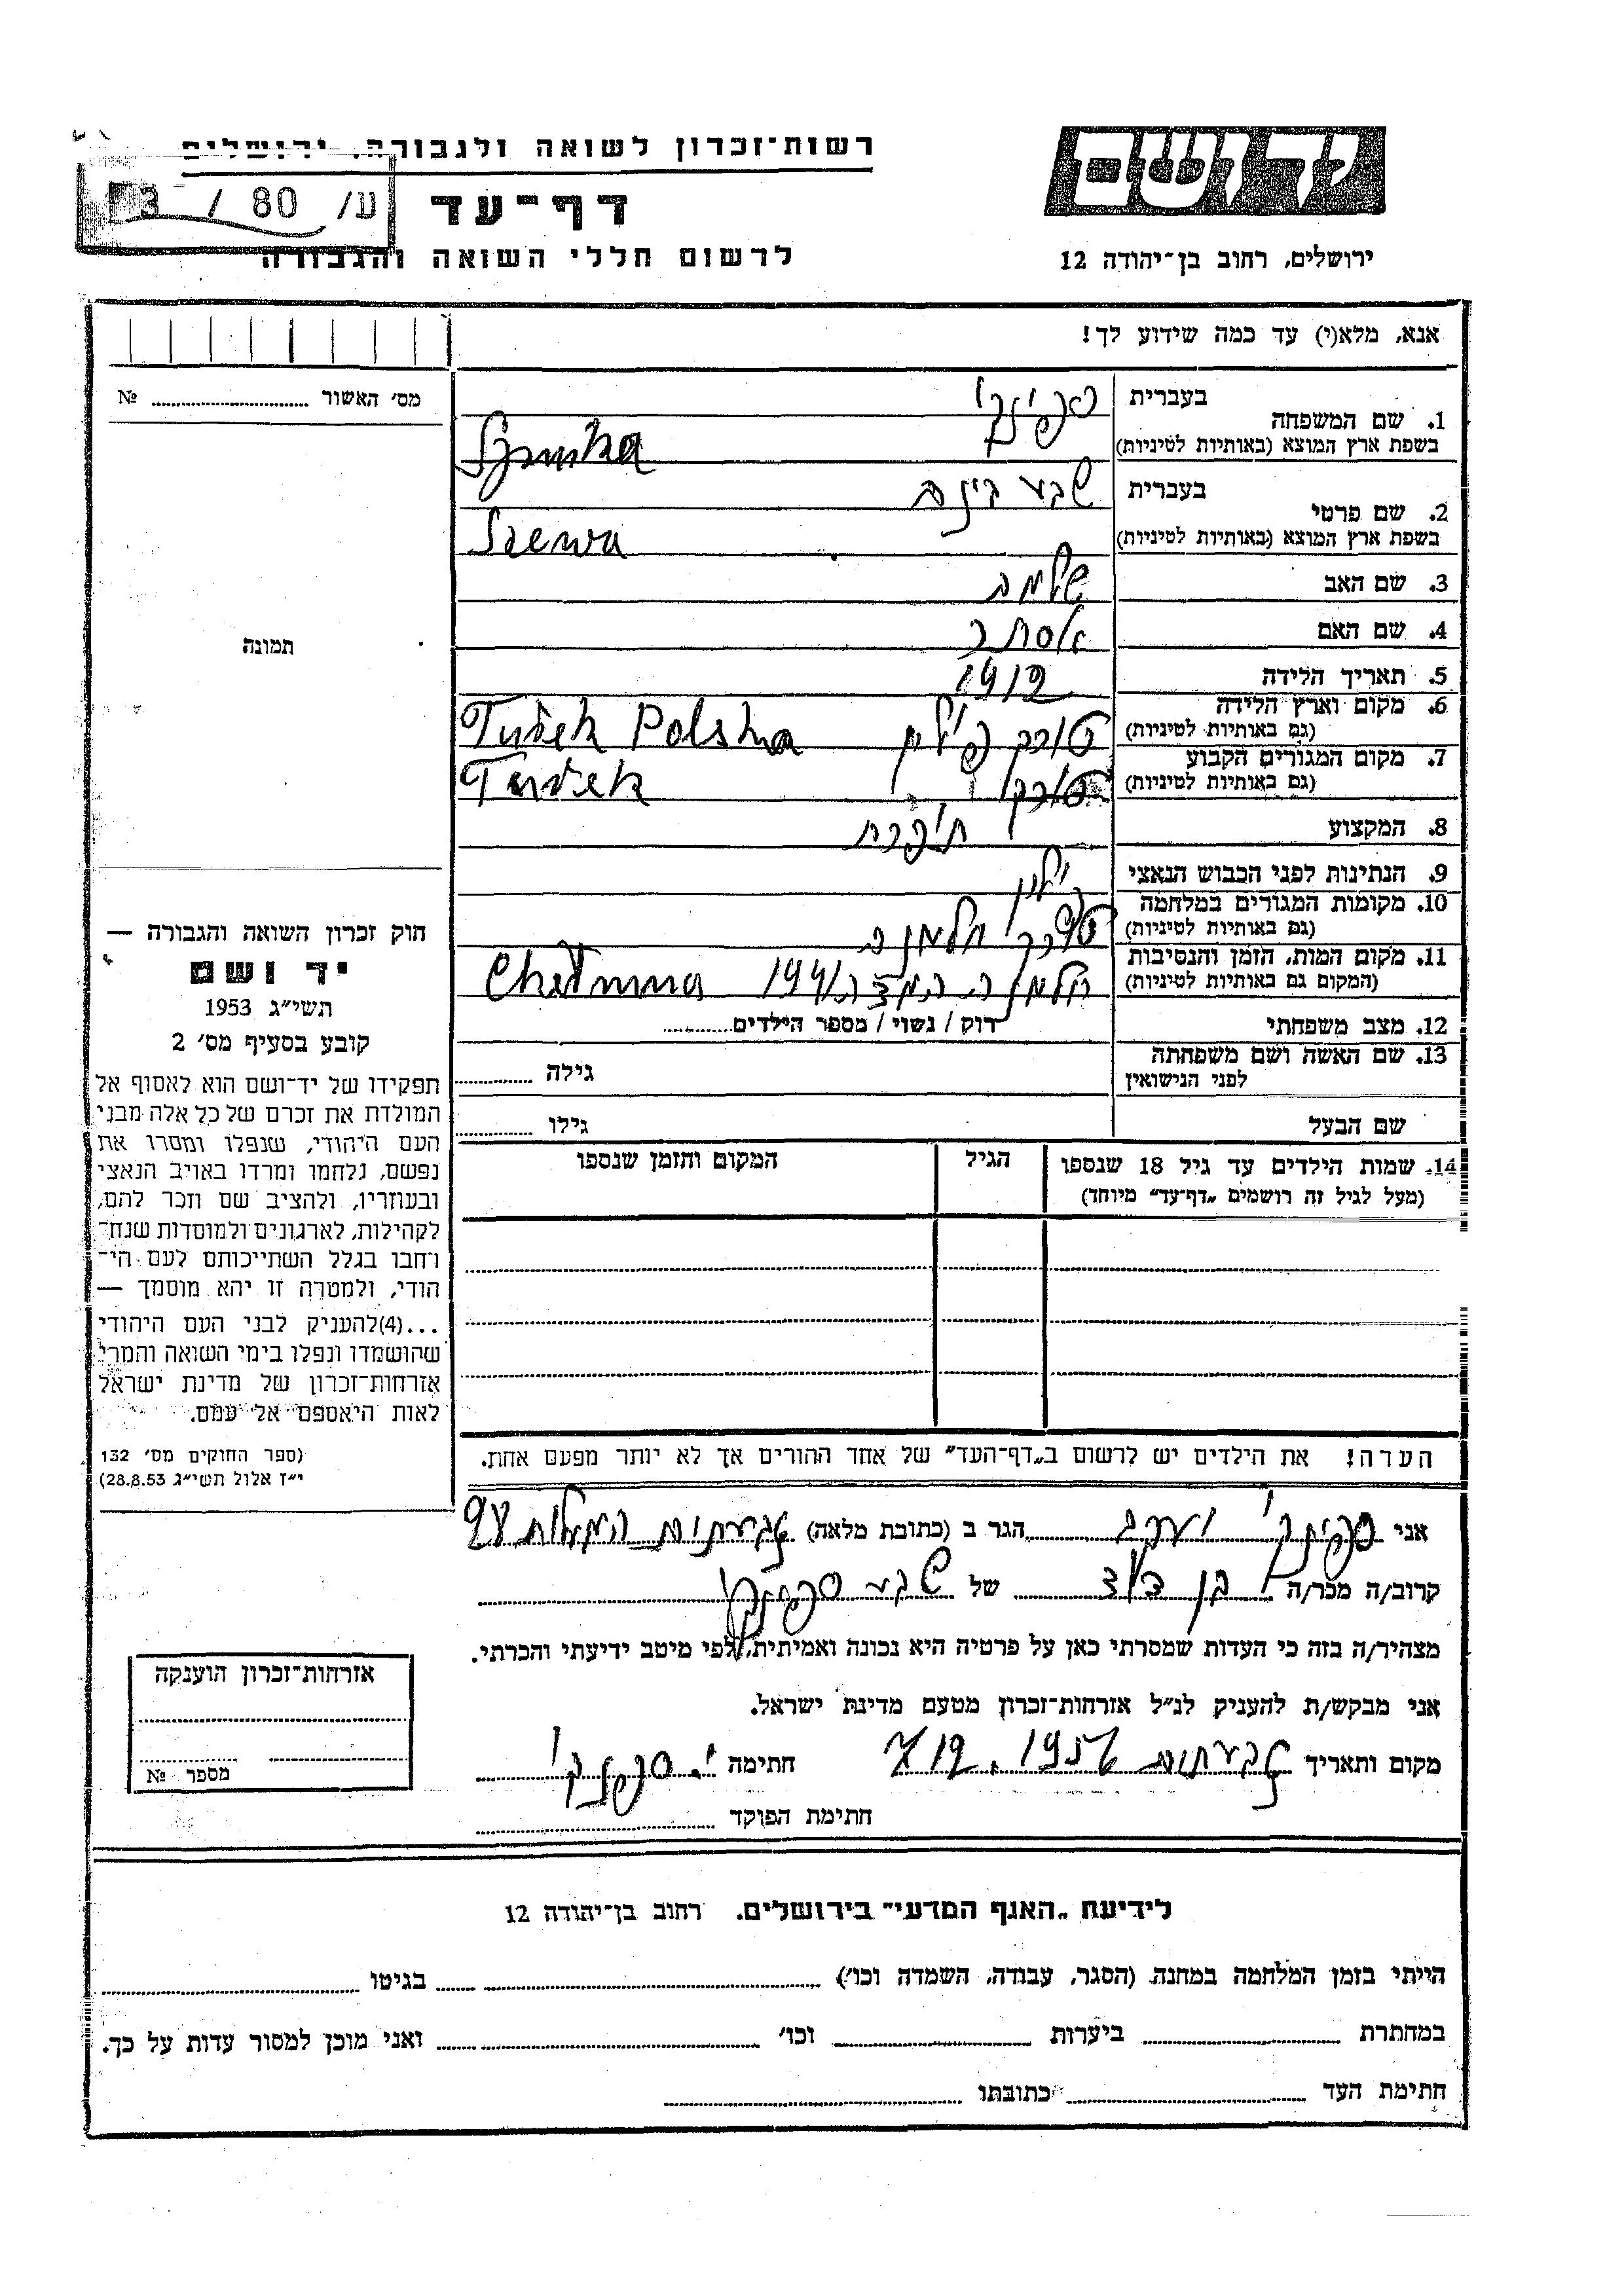 יד ושם
רשות־זכרון לשואה ולגבורה, ירושלים
ע/ 80 / 3
דף־עד
לרשום חללי השואה והגבורה
ירושלים, רחוב בן־יהודה 12
אנא, מלא(י) עד כמה שידוע לך!
מס׳ האשור № 
1. שם המשפחה
בעברית
בשפת ארץ המוצא (באותיות לטיניות)
2. שם פרטי
בעברית שבע
בשפת ארץ המוצא (באותיות לטיניות) Szewa
3. שם האב שלמה
4. שם האם אסתר
5. תאריך הלידה 1912
6. מקום וארץ הלידה טורק פולין Turek Polska
(גם באותיות לטיניות)
7. מקום המגורים הקבוע טורק Turek
(גם באותיות לטיניות)
8. המקצוע תופרת
9. הנתינות לפני הכבוש הנאצי
10. מקומות המגורים במלחמה טורק חלמנה
(גם באותיות לטיניות)
11. מקום המות, הזמן והנסיבות חלמנה 1941 Chełmna
(המקום גם באותיות לטיניות)
12. מצב משפחתי רוק / נשוי / מספר הילדים
13. שם האשה ושם משפחתה
לפני הנישואין
גילה
שם הבעל גילו
14. שמות הילדים עד גיל 18 שנספו הגיל המקום והזמן שנספו
(מעל לגיל זה רושמים „דף־עד" מיוחד)
תמונה
חוק זכרון השואה והגבורה —
יד ושם
תשי״ג 1953
קובע בסעיף מס׳ 2
תפקידו של יד־ושם הוא לאסוף אל
המולדת את זכרם של כל אלה מבני
העם היהודי, שנפלו ומסרו את
נפשם, נלחמו ומרדו באויב הנאצי
ובעוזריו, ולהציב שם וזכר להם,
לקהילות, לארגונים ולמוסדות שנח־
רחבו בגלל השתייכותם לעם הי־
הודי, ולמטרה זו יהא מוסמך —
...(4)להעניק לבני העם היהודי
שהושמדו ונפלו בימי השואה והמרי
אזרחות־זכרון של מדינת ישראל
לאות היאספם אל עמם.
(ספר החוקים מס׳ 132
י״ז אלול תשי״ג 28.8.53)
הערה! את הילדים יש לרשום ב„דף־העד" של אחד ההורים אך לא יותר מפעם אחת.
אני הגר ב (כתובת מלאה) גבעתיים המעלות
קרוב/ה מכר/ה בן דוד של שבע
מצהיר/ה בזה כי העדות שמסרתי כאן על פרטיה היא נכונה ואמיתית, לפי מיטב ידיעתי והכרתי.
אני מבקש/ת להעניק לנ״ל אזרחות־זכרון מטעם מדינת ישראל.
מקום ותאריך גבעתיים 1956 חתימה
חתימת הפוקד
אזרחות־זכרון הוענקה
מספר №
לידיעת „האגף המדעי" בירושלים. רחוב בן־יהודה 12
הייתי בזמן המלחמה במחנה (הסגר, עבודה, השמדה וכו׳) בגיטו
במחתרת ביערות וכו׳ ואני מוכן למסור עדות על כך.
חתימת העד כתובתו